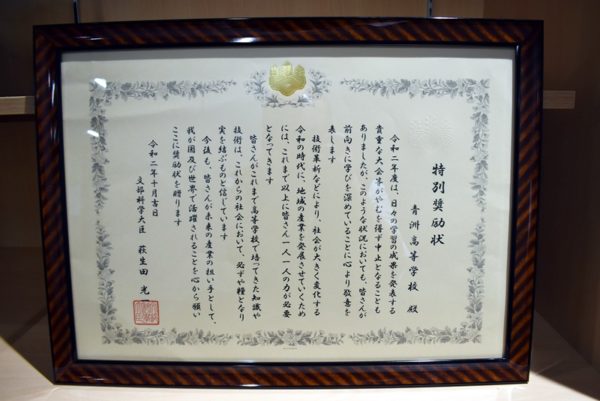 特別奨励状
青洲高等学校 殿
令和二年度は、日々の学習の成果を発表する
貴重な大会等がやむを得ず中止となることも
ありましたが、このような状況においても、皆さんが
前向きに学びを深めていることに心より敬意を
表します
技術革新などにより、社会が大きく変化する
令和の時代に、地域の産業を発展させていくため
には、これまで以上に皆さん一人一人の力が必要
となってきます
皆さんがこれまで高等学校で培ってきた知識や
技術は、これからの社会において、必ずや糧となり
実を結ぶものと信じています
今後も、皆さんが未来の産業の担い手として、
我が国及び世界で活躍されることを心から願い
ここに奨励状を贈ります
令和二年十月吉日
文部科学大臣 萩生田 光一